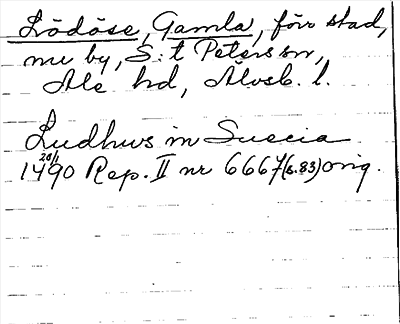 Lödöse, Gamla, förv stad,
nu by, S:t Peters sn,
Ale hd, Älvsb. l.
Ludhus in Suecia
20/1
1490 Rep. II nr 6667 (s.83) orig.